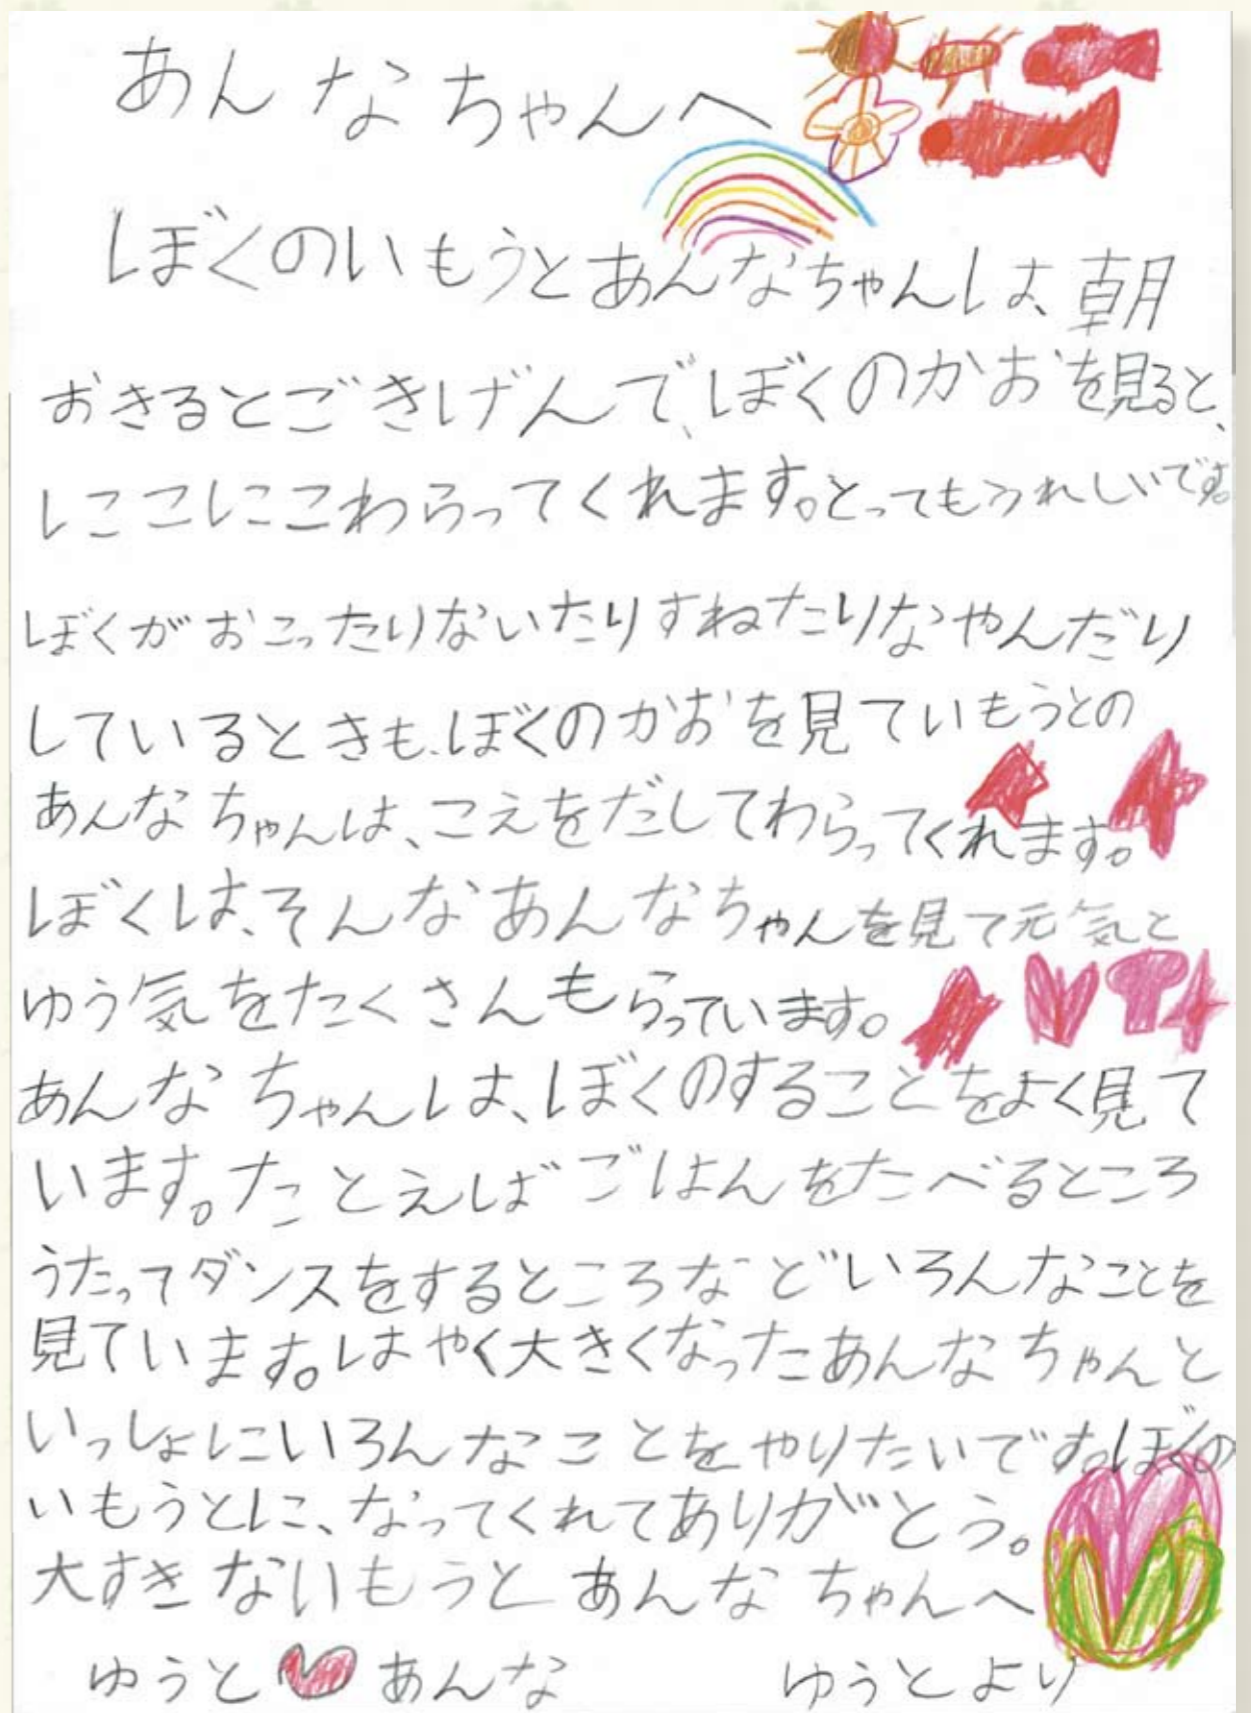 あんなちゃんへ
ぼくのいもうとあんなちゃんは、朝
おきるとごきげんで、ぼくのかおを見ると、
にこにこわらってくれます。とってもうれしいです。
ぼくがおこったりないたりすねたりなやんだり
しているときも、ぼくのかおを見ていもうとの
あんなちゃんは、こえをだしてわらってくれます。
ぼくは、そんなあんなちゃんを見て元気と
ゆう気をたくさんもらっています。
あんなちゃんは、ぼくのすることをよく見て
います。たとえばごはんをたべるところ
うたってダンスをするところなどいろんなことを
見ています。はやく大きくなったあんなちゃんと
いっしょにいろんなことをやりたいです。ぼくの
いもうとに、なってくれてありがとう。
大すきないもうとあんなちゃんへ
ゆうと あんな ゆうとより